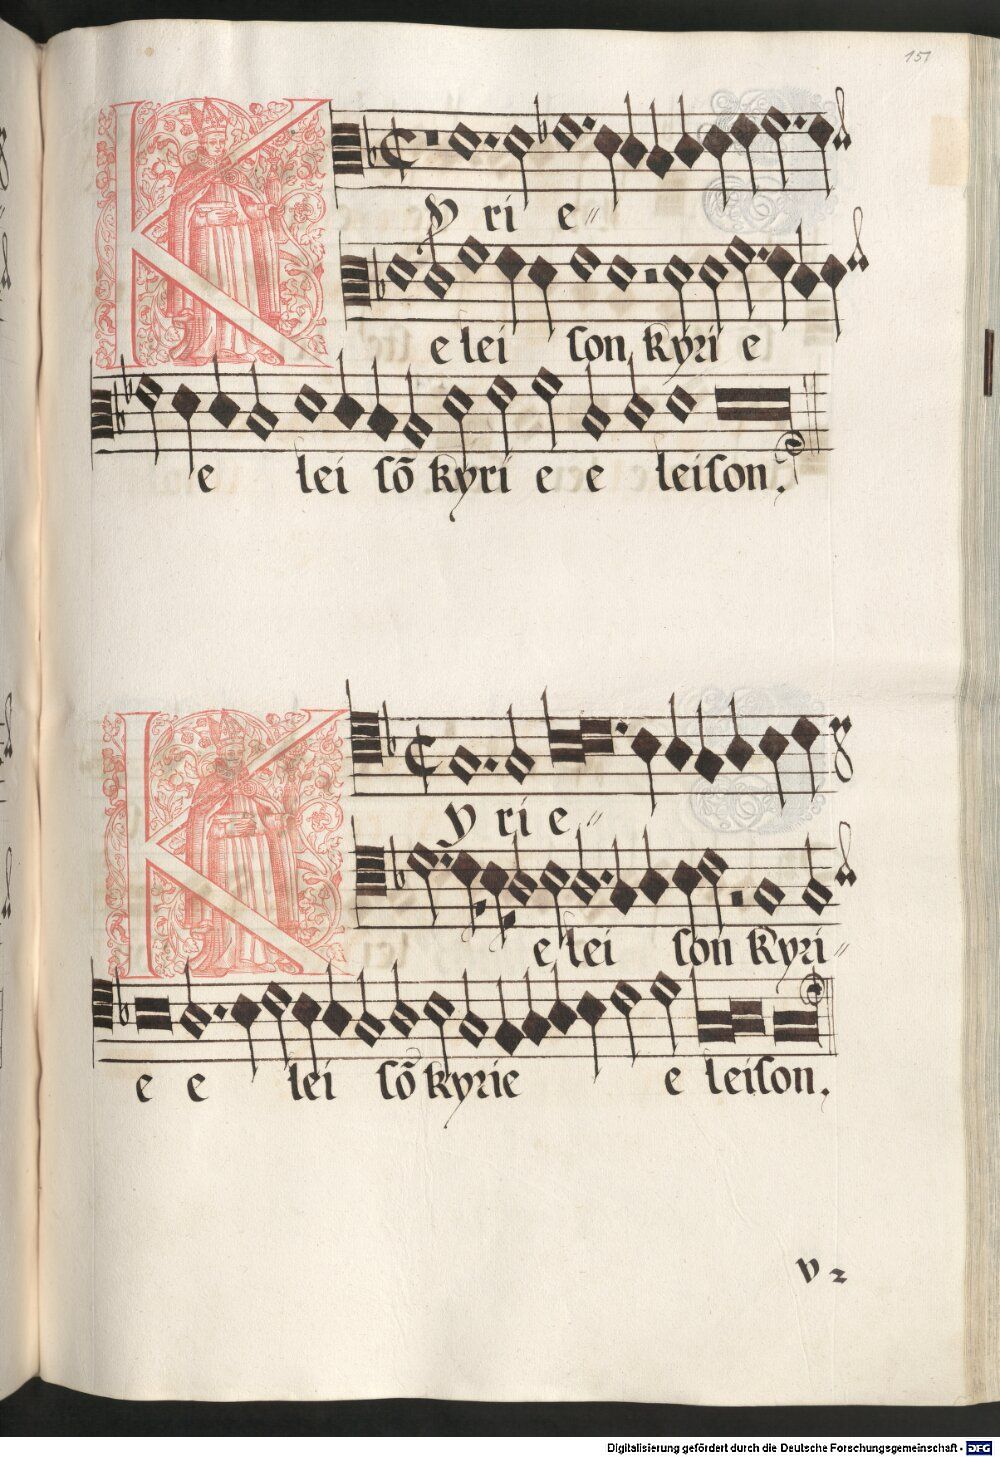 151
Kyrie
e lei son kyri e
e lei sō kyri e e leison.
Kyrie
e lei son kyri
e e lei sō kyrie e leison.
v 2
Digitalisierung gefördert durch die Deutsche Forschungsgemeinschaft - DFG